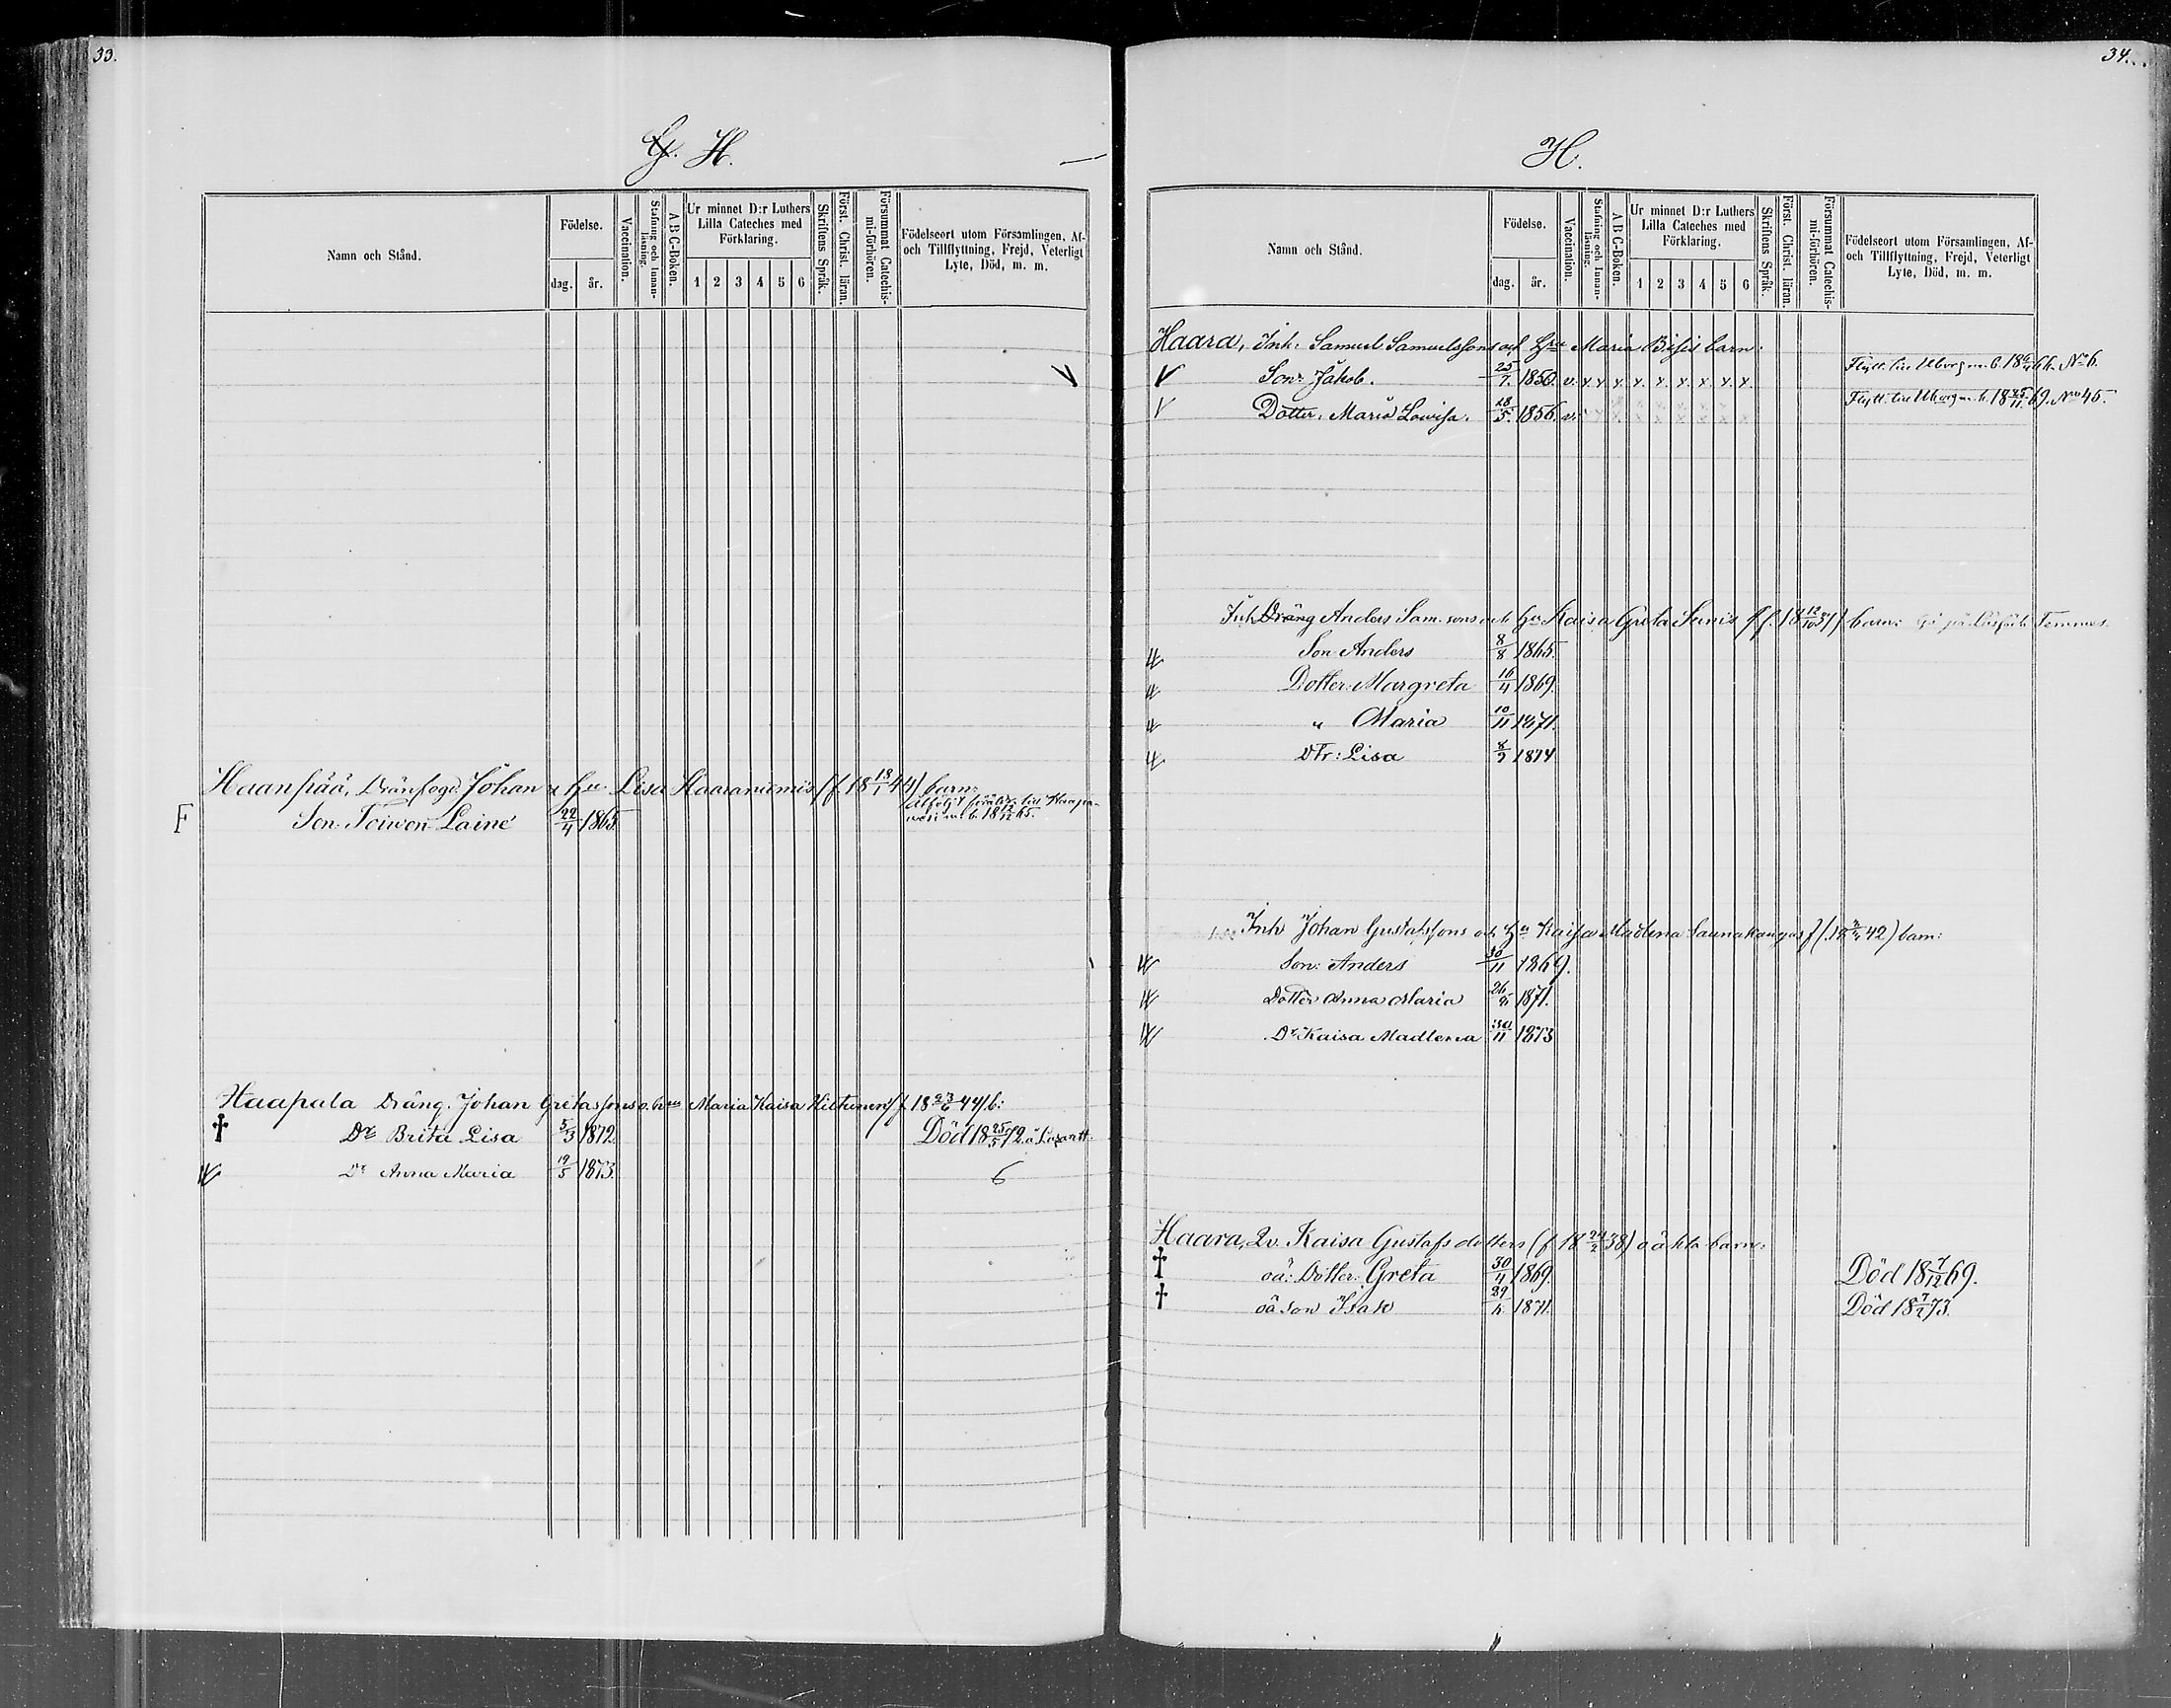 33.
H.
Namn och Stånd.
Födelse.
dag. år.
Vaccination.
Stafning och Innanläsning.
A B C-Boken.
Ur minnet D:r Luthers Lilla Cateches med Förklaring.
1 2 3 4 5 6
Skriftens Språk.
Först. Christ. läran.
Försummat Catechismi-förhören.
Födelseort utom Församlingen, Af- och Tillflyttning, Frejd, Veterligt Lyte, Död, m. m.
Haanpää, Johan Lisa (f. 18 18/1 44) barn:
F Son Toiwon Laine 22/4 1865. till Haapa-
m. b. 18 12/12 65.
Haapala Dräng. Johan Gretassons o. hus Maria Kaisa Hiltunen (f. 18 23/6 44) b:
† Dr Brita Lisa 5/3 1872. Död 18 25/5 72
Dr Anna Maria 19/5 1873. 6
34.
H.
Namn och Stånd.
Födelse.
dag. år.
Vaccination.
Stafning och Innanläsning.
A B C-Boken.
Ur minnet D:r Luthers Lilla Cateches med Förklaring.
1 2 3 4 5 6
Skriftens Språk.
Först. Christ. läran.
Försummat Catechismi-förhören.
Födelseort utom Församlingen, Af- och Tillflyttning, Frejd, Veterligt Lyte, Död, m. m.
Haara, Inh. Samuel Samuelssons och Hu Maria barn:
V Son: Jakob. 25/7 1850. v. x x x x. x. x. x. x. x. Flytt. till Uleorg m. b. No 6.
V Dotter: Maria Lowisa. 28/5 1856. v. Flytt. till Uleorg m. b. 18 25/11 69. No 45.
Inh Dräng Anders Sam.sons och hu Kaisa Greta (f. 18 12/10 37) barn: Temmes.
Son Anders 8/8 1865.
Dotter: Margreta 16/4 1869.
" Maria 10/11 1871.
Dtr: Lisa 8/9 1874
Inh Johan Gustafssons och Hu Kaisa Madlena Saunakangas f (18 42) barn:
Son: Anders 30/11 1869.
Dotter Anna Maria 1871.
Dr Kaisa Madlena 30/11 1873
Haara, Qv. Kaisa Gustafsdotters (f. 18 24/2 38) oäkta barn:
† oä: Dotter: Greta 30/4 1869. Död 18 7/12 69.
† oä son Isak 1871. Död 18 73.